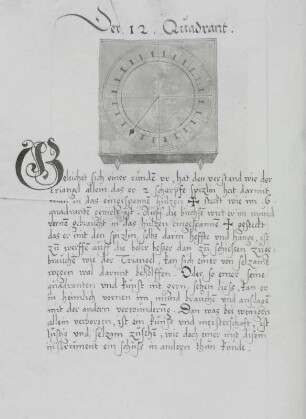 Der 12 Quadrant.
Gleichet sich einer runden vr, hat den verstand wie der
triangel allein das er 2 scharpfe spizlin hat darmit
man in das eingespanne hülzen stecht wie im 6
quadranten gemelt ist. Auß die büchse wirt er im mund
vornen gebraucht in das hülzen eingespanne gesteckt
das er mit den spizlin, solts darin hefftn und hange, ist
zů werffe auch die böler besser dan zů schiessen zůge
brauchen wie der Triangel, kan sich einer von selzam
wegen wal darmit behelffen. Oder so einer seine
quadranten und kunst nit gern sehen liese kan er
in heimlich vornen im mund brauchen und anschlagen
mit der andern verwundern. Dan was bei wenigen
allein verborgen, ist ein kunst und meisterschafft, ist
lustig und selzam zůsehen, wie doch einer mit disem
instrument ein schuß in andern thun künde.